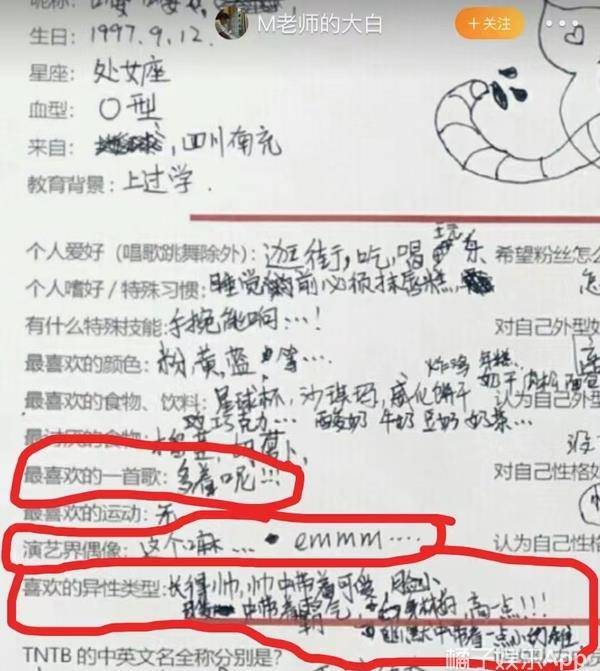 昵称:
M老师的大白
+关注
生日: 1997.9.12.
星座: 处女座
血型: O型
来自: , 四川南充
教育背景: 上过学.
个人爱好(唱歌跳舞除外): 逛街,吃,喝 玩 乐
希望粉丝怎么
个人嗜好/特殊习惯: 睡觉前必须抹唇膏.
怎
有什么特殊技能: 手腕能响…!
对自己外型如
最喜欢的颜色: 粉,黄,蓝 等…
炸鸡 年糕
奶干 肉松 面包
最喜欢的食物、饮料: 星球杯,沙琪玛,威化饼干
认为自己外型
巧克力… 酸奶 牛奶 豆奶 奶茶…
最讨厌的食物: 胡萝卜,
没
最喜欢的一首歌: 多着呢!!!
对自己性格如
最喜欢的运动: 无
演艺界偶像: 这个嘛… emmm……
认为自己性格
喜欢的异性类型: 长得帅,帅中带着可爱 脸小
中带着霸气, 高一点!!!
幽默中带着一点小
TNTB 的中英文名全称分别是?
橘子娱乐App